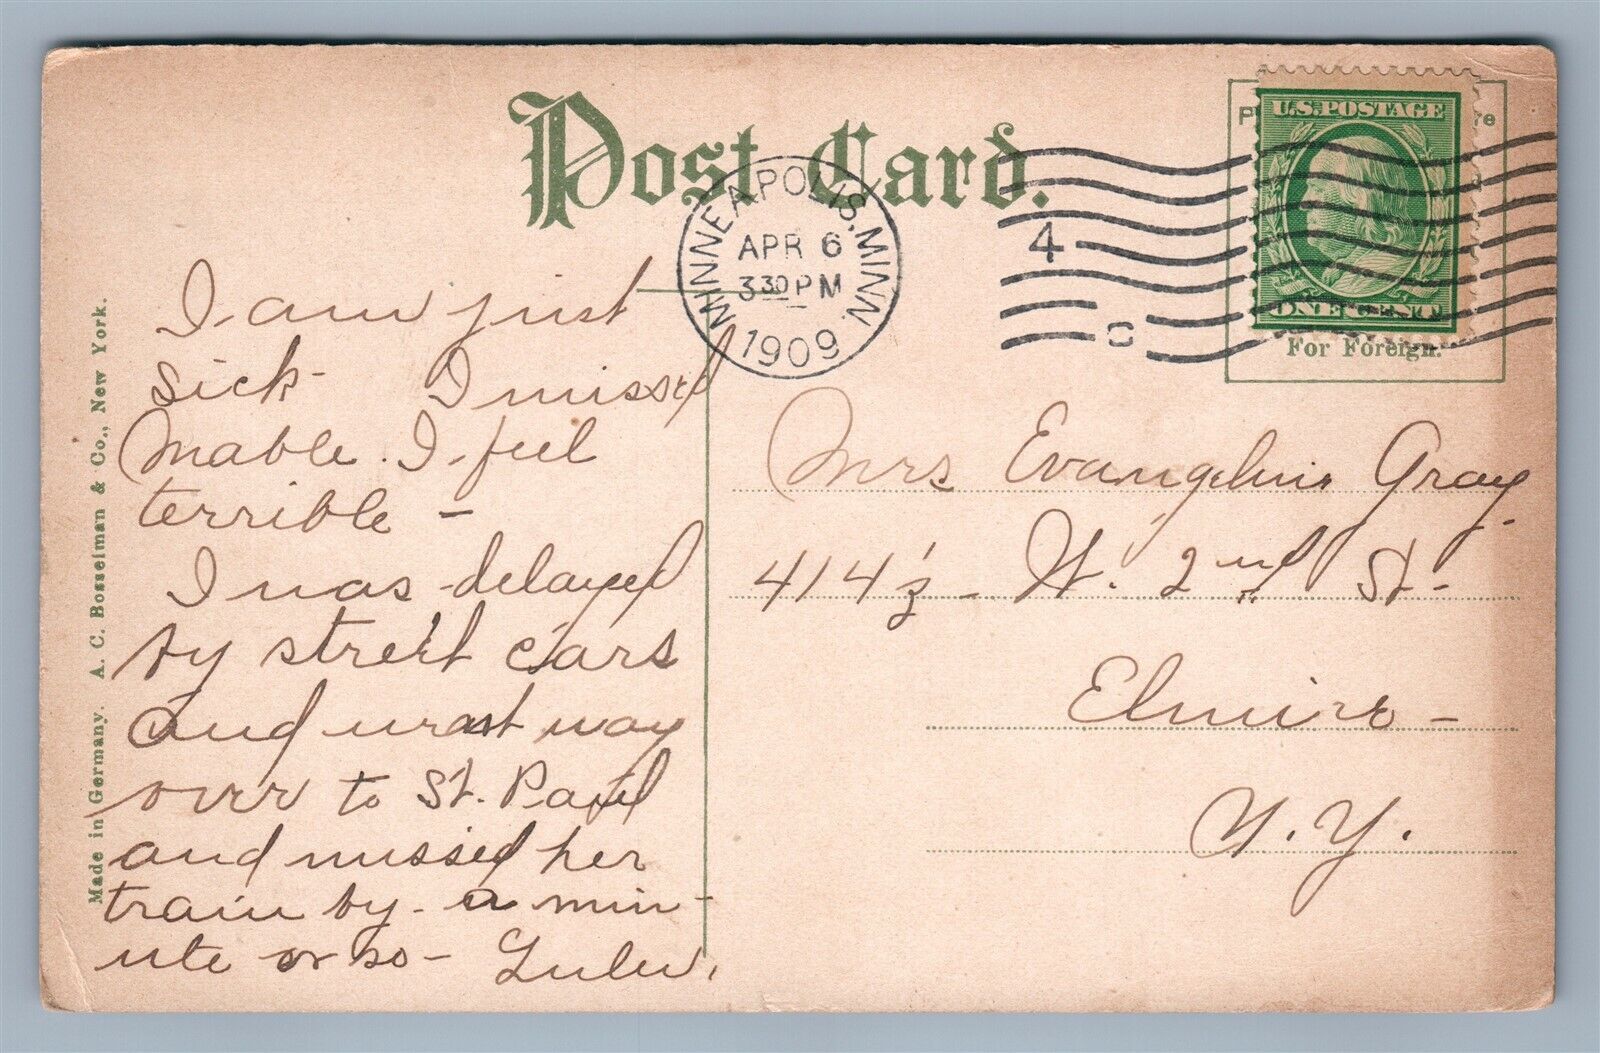 Post Card.
MINNEAPOLIS, MINN.
APR 6
3 30 PM
1909
4
U.S. POSTAGE
ONE CENT
For Foreign.
I am just
sick - I missed
Mable. I feel
terrible -
I was delayed
by street cars
and went way
over to St. Paul
and missed her
train by a min-
ute or so - Lulu.
Mrs Evangeline Gray
414½ - W. 2nd St -
Elmira -
N.Y.
Made in Germany. A. C. Bosselman & Co., New York.